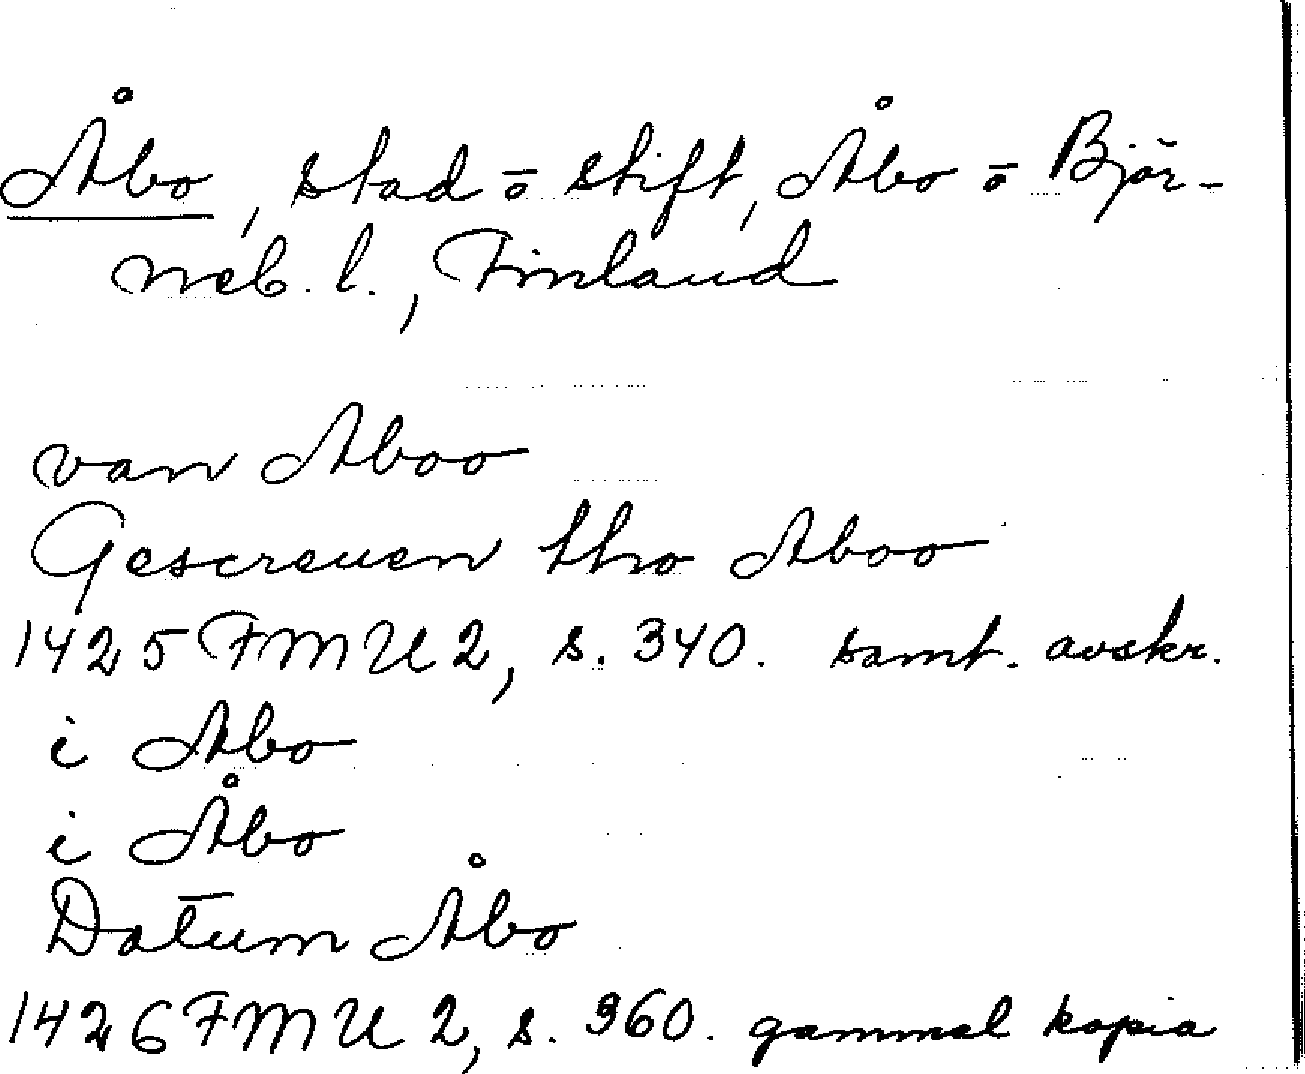 Åbo, stad ō stift, Åbo ō Björ-
neb. l., Finland
van Aboo
Gescreuen tho Aboo
1425 FMU 2, s. 340. samt. avskr.
i Abo
i Åbo
Datum Åbo
1426 FMU 2, s. 360. gammal kopia